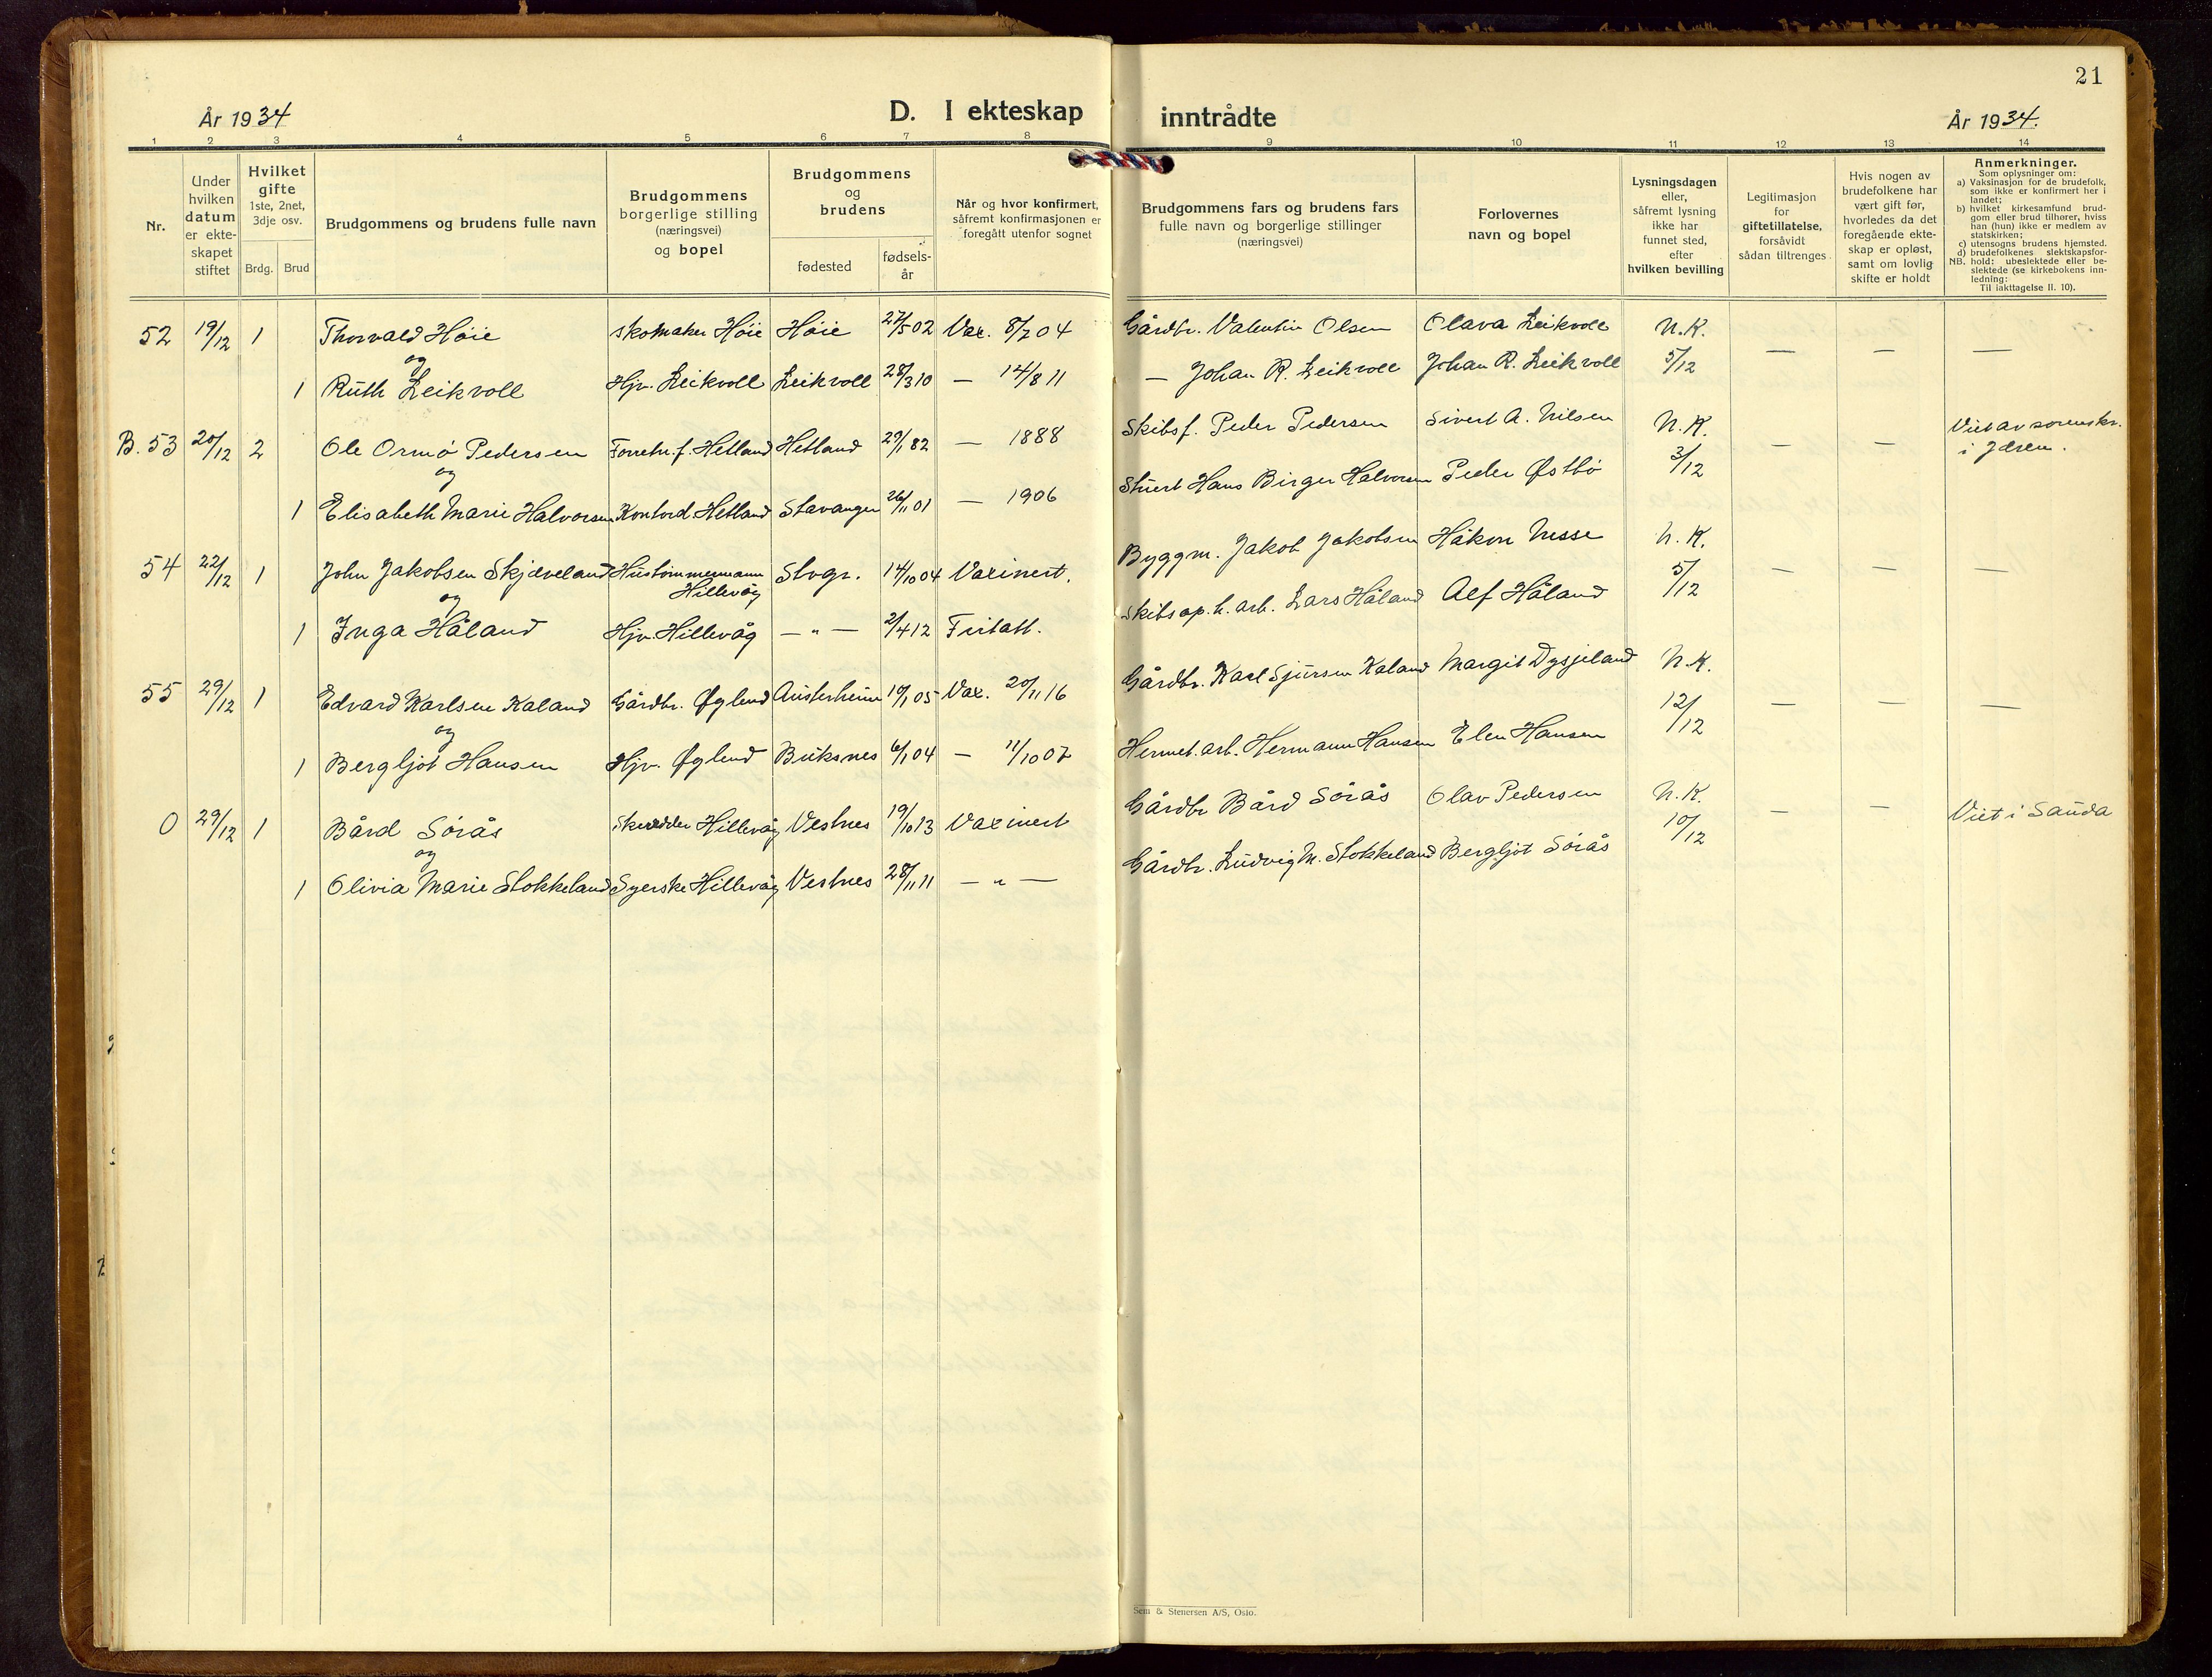 21
År 1934
D. I ekteskap inntrådte
År 1934.
1 2 3 4 5 6 7 8 9 10 11 12 13 14
Nr.
Under hvilken datum er ekte-skapet stiftet
Hvilket gifte 1ste, 2net, 3dje osv.
Brdg. Brud
Brudgommens og brudens fulle navn
Brudgommens borgerlige stilling (næringsvei) og bopel
Brudgommens og brudens
fødested
fødsels-år
Når og hvor konfirmert, såfremt konfirmasjonen er foregått utenfor sognet
Brudgommens fars og brudens fars fulle navn og borgerlige stillinger (næringsvei)
Forlovernes navn og bopel
Lysningsdagen eller, såfremt lysning ikke har funnet sted, efter hvilken bevilling
Legitimasjon for giftetillatelse, forsåvidt sådan tiltrenges
Hvis nogen av brudefolkene har vært gift før, hvorledes da det foregående ekte-skap er opløst, samt om lovlig skifte er holdt
Anmerkninger.
Som oplysninger om:
a) Vaksinasjon for de brudefolk, som ikke er konfirmert her i landet;
b) hvilket kirkesamfund brud-gom eller brud tilhører, hviss han (hun) ikke er medlem av statskirken;
c) utensogns brudens hjemsted.
d) brudefolkenes slektskapsfor-hold: ubeslektede eller be-slektede (se kirkebokens inn-ledning:
NB. Til iakttagelse II. 10).
52 19/12 1 Thorvald Höie skomaker Höie Höie 27/5 02 Vax. 8/7 04 Gårdbr. Valentin Olsen Olava Leikvoll N.K. — — —
og
1 Ruth Leikvoll Hjv. Leikvoll Leikvoll 28/3 10 — 14/8 11 — Johan R. Leikvoll Johan R. Leikvoll 5/12
B. 53 20/12 2 Ole Ormö Pedersen Forretn.f. Hetland Hetland 29/1 82 — 1888 Skibsf. Peder Pedersen Sivert A. Nilsen N.K. — — Viet av sorenskr. i Jæren.
og
1 Elisabeth Marie Halvorsen Kontord. Hetland Stavanger 26/11 01 — 1906 Stuert Hans Birger Halvorsen Peder Østbö 3/12
54 22/12 1 John Jakobsen Skjæveland Hustömmermann Hillevåg Stvgr. 14/10 04 Vaxinert. Byggm. Jakob Jakobsen Håkon Nesse N.K. — — —
og
1 Inga Håland Hjv. Hillevåg — " — 2/4 12 Fritatt. Skibsop.h. arb. Lars Håland Alf Håland 5/12
55 29/12 1 Edvard Karlsen Kaland Gårdbr. Øglend Austerheim 14/1 05 Vax. 20/11 16 Gårdbr. Karl Sjursen Kaland Margit Dysjeland N.K. — — —
og
1 Bergljot Hansen Hjv. Øglend Buksnes 6/1 04 — 11/10 07 Hermet. arb. Hermann Hansen Elen Hansen 12/12
0 29/12 1 Bård Sörås Skredder Hillevåg Vestnes 19/10 13 Vaxinert Gårdbr Bård Sörås Olav Pedersen N.K. — — Viet i Sauda
og
1 Olivia Marie Stokkeland Syerske Hillevåg Vestnes 28/11 11 — " — Gårdbr. Ludvig M. Stokkeland Bergljot Sörås 10/12
Sem & Stenersen A/S, Oslo.